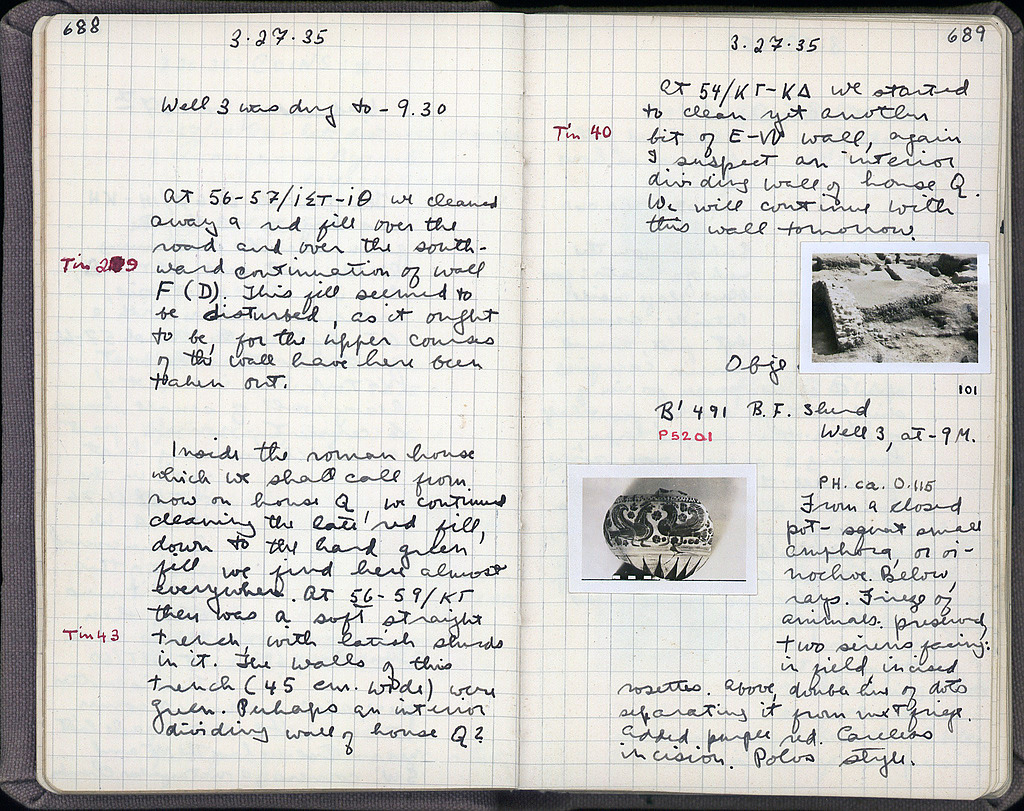 688
3·27·35
Well 3 was dug to - 9.30
At 56-57/ΙΣΤ-ΙΘ we cleaned
away a red fill over the
road and over the south-
Tin 29
ward continuation of wall
F (D). This fill seemed to
be disturbed, as it ought
to be, for the upper courses
of the wall have here been
taken out.
Inside the roman house
which we shall call from
now on house Q we continued
cleaning the late red fill,
down to the hard green
fill we find here almost
everywhere. At 56-59/ΚΓ
there was a soft straight
Tin 43
trench, with latish sherds
in it. The walls of this
trench (45 cm. wide) were
green. Perhaps an interior
dividing wall of house Q?
689
3·27·35
At 54/ΚΓ-ΚΔ we started
to clean yet another
Tin 40
bit of E-W wall, again
I suspect an interior
dividing wall of house Q.
We will continue with
this wall tomorrow.
Obje
101
B' 491 B.F. Sherd
P5201
Well 3, at -9 M.
PH. ca. 0.115
From a closed
pot - squat small
amphora, or oi-
nochoe. Below,
rays. Frieze of
animals. preserved,
two sirens facing:
in field, incised
rosettes. above, double line of dots
separating it from next frieze.
Added purple red. Careless
incision. Polos style.